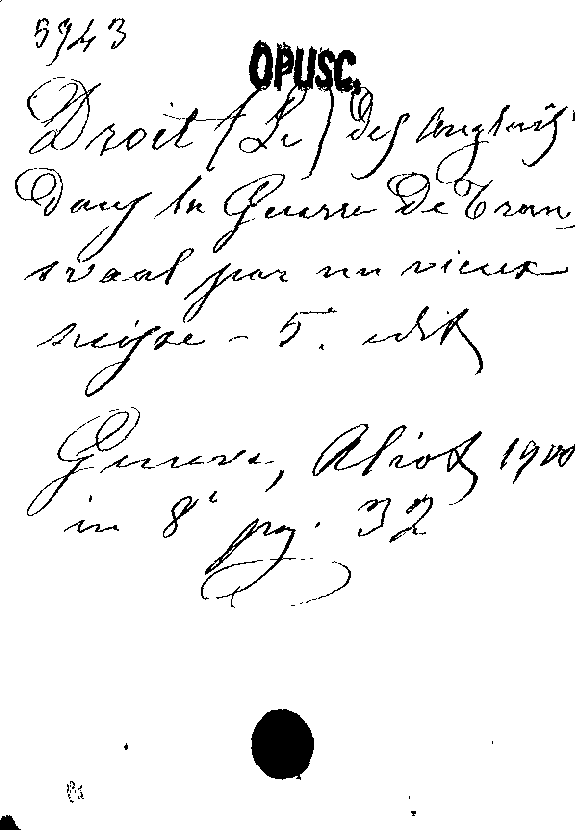 5943
OPUSC.
Droit (Le) des Anglais
dans la Guerre de Tran,
svaal par un vieux
suisse - 5. edit
Geneve, Aliot, 1900
in 8° pag. 32